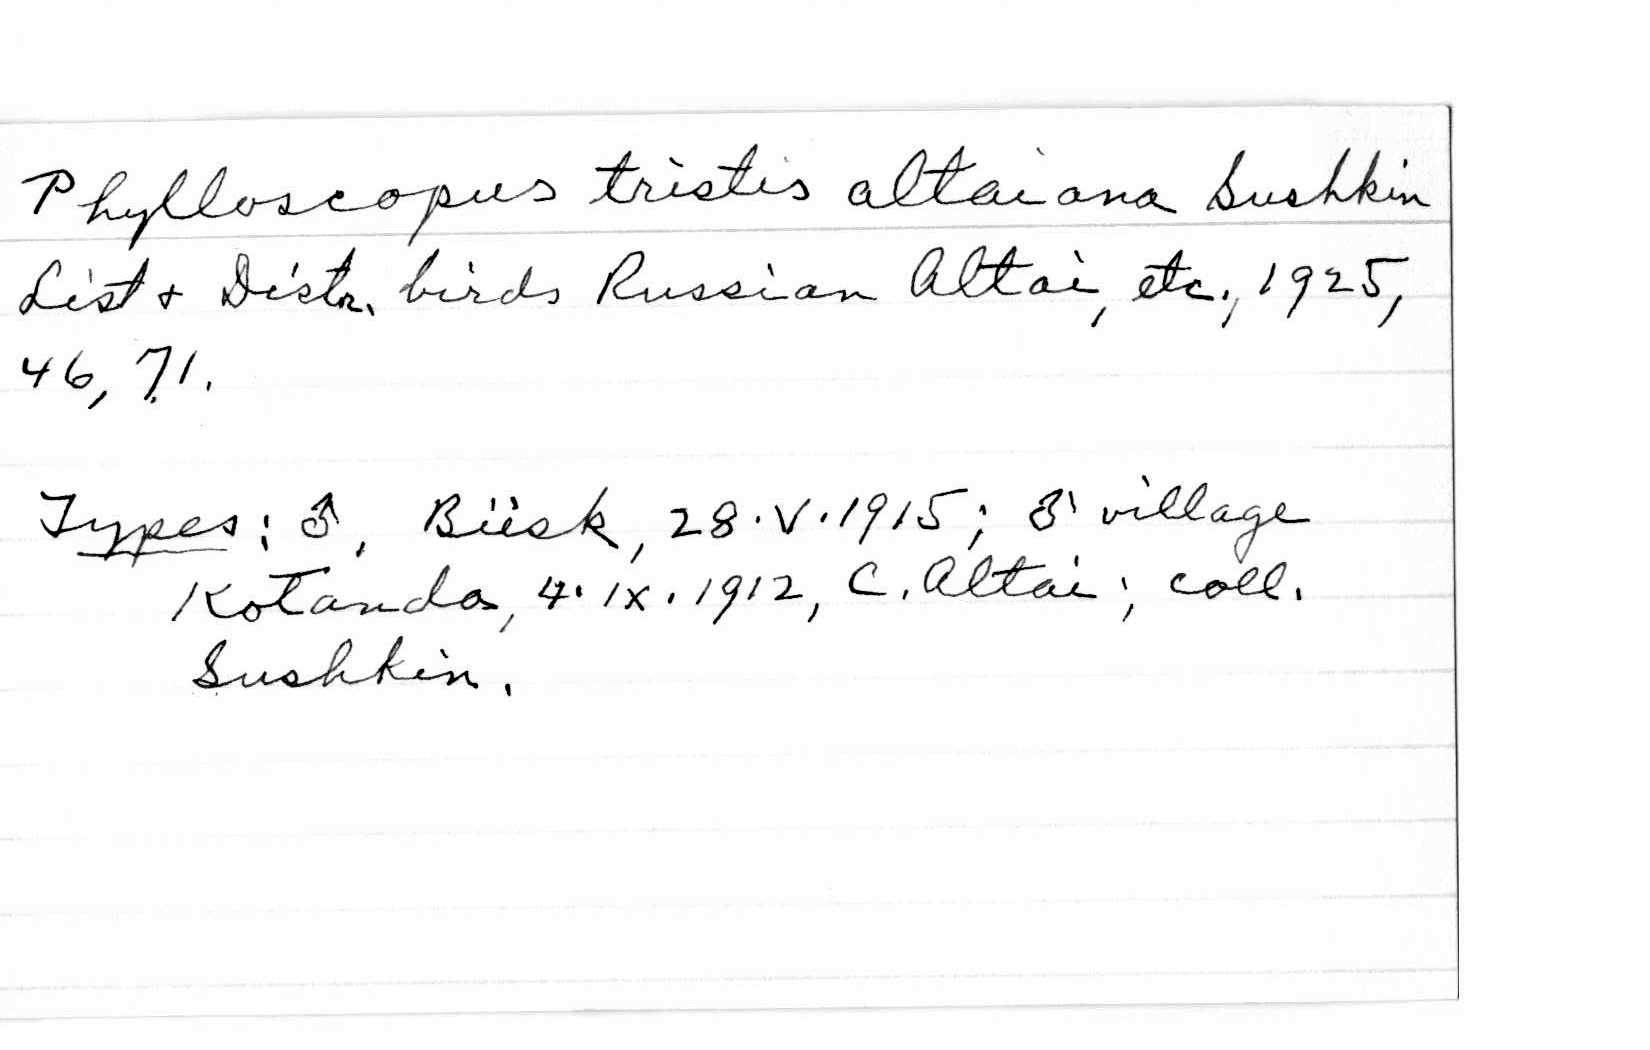 Phylloscopus tristis altaiana Sushkin
List & Distr. birds Russian Altai, etc., 1925,
46, 71.
Types: ♂, Biisk, 28.V.1915; ♂ village
Kotanda, 4.IX.1912, C. Altai; coll.
Sushkin.